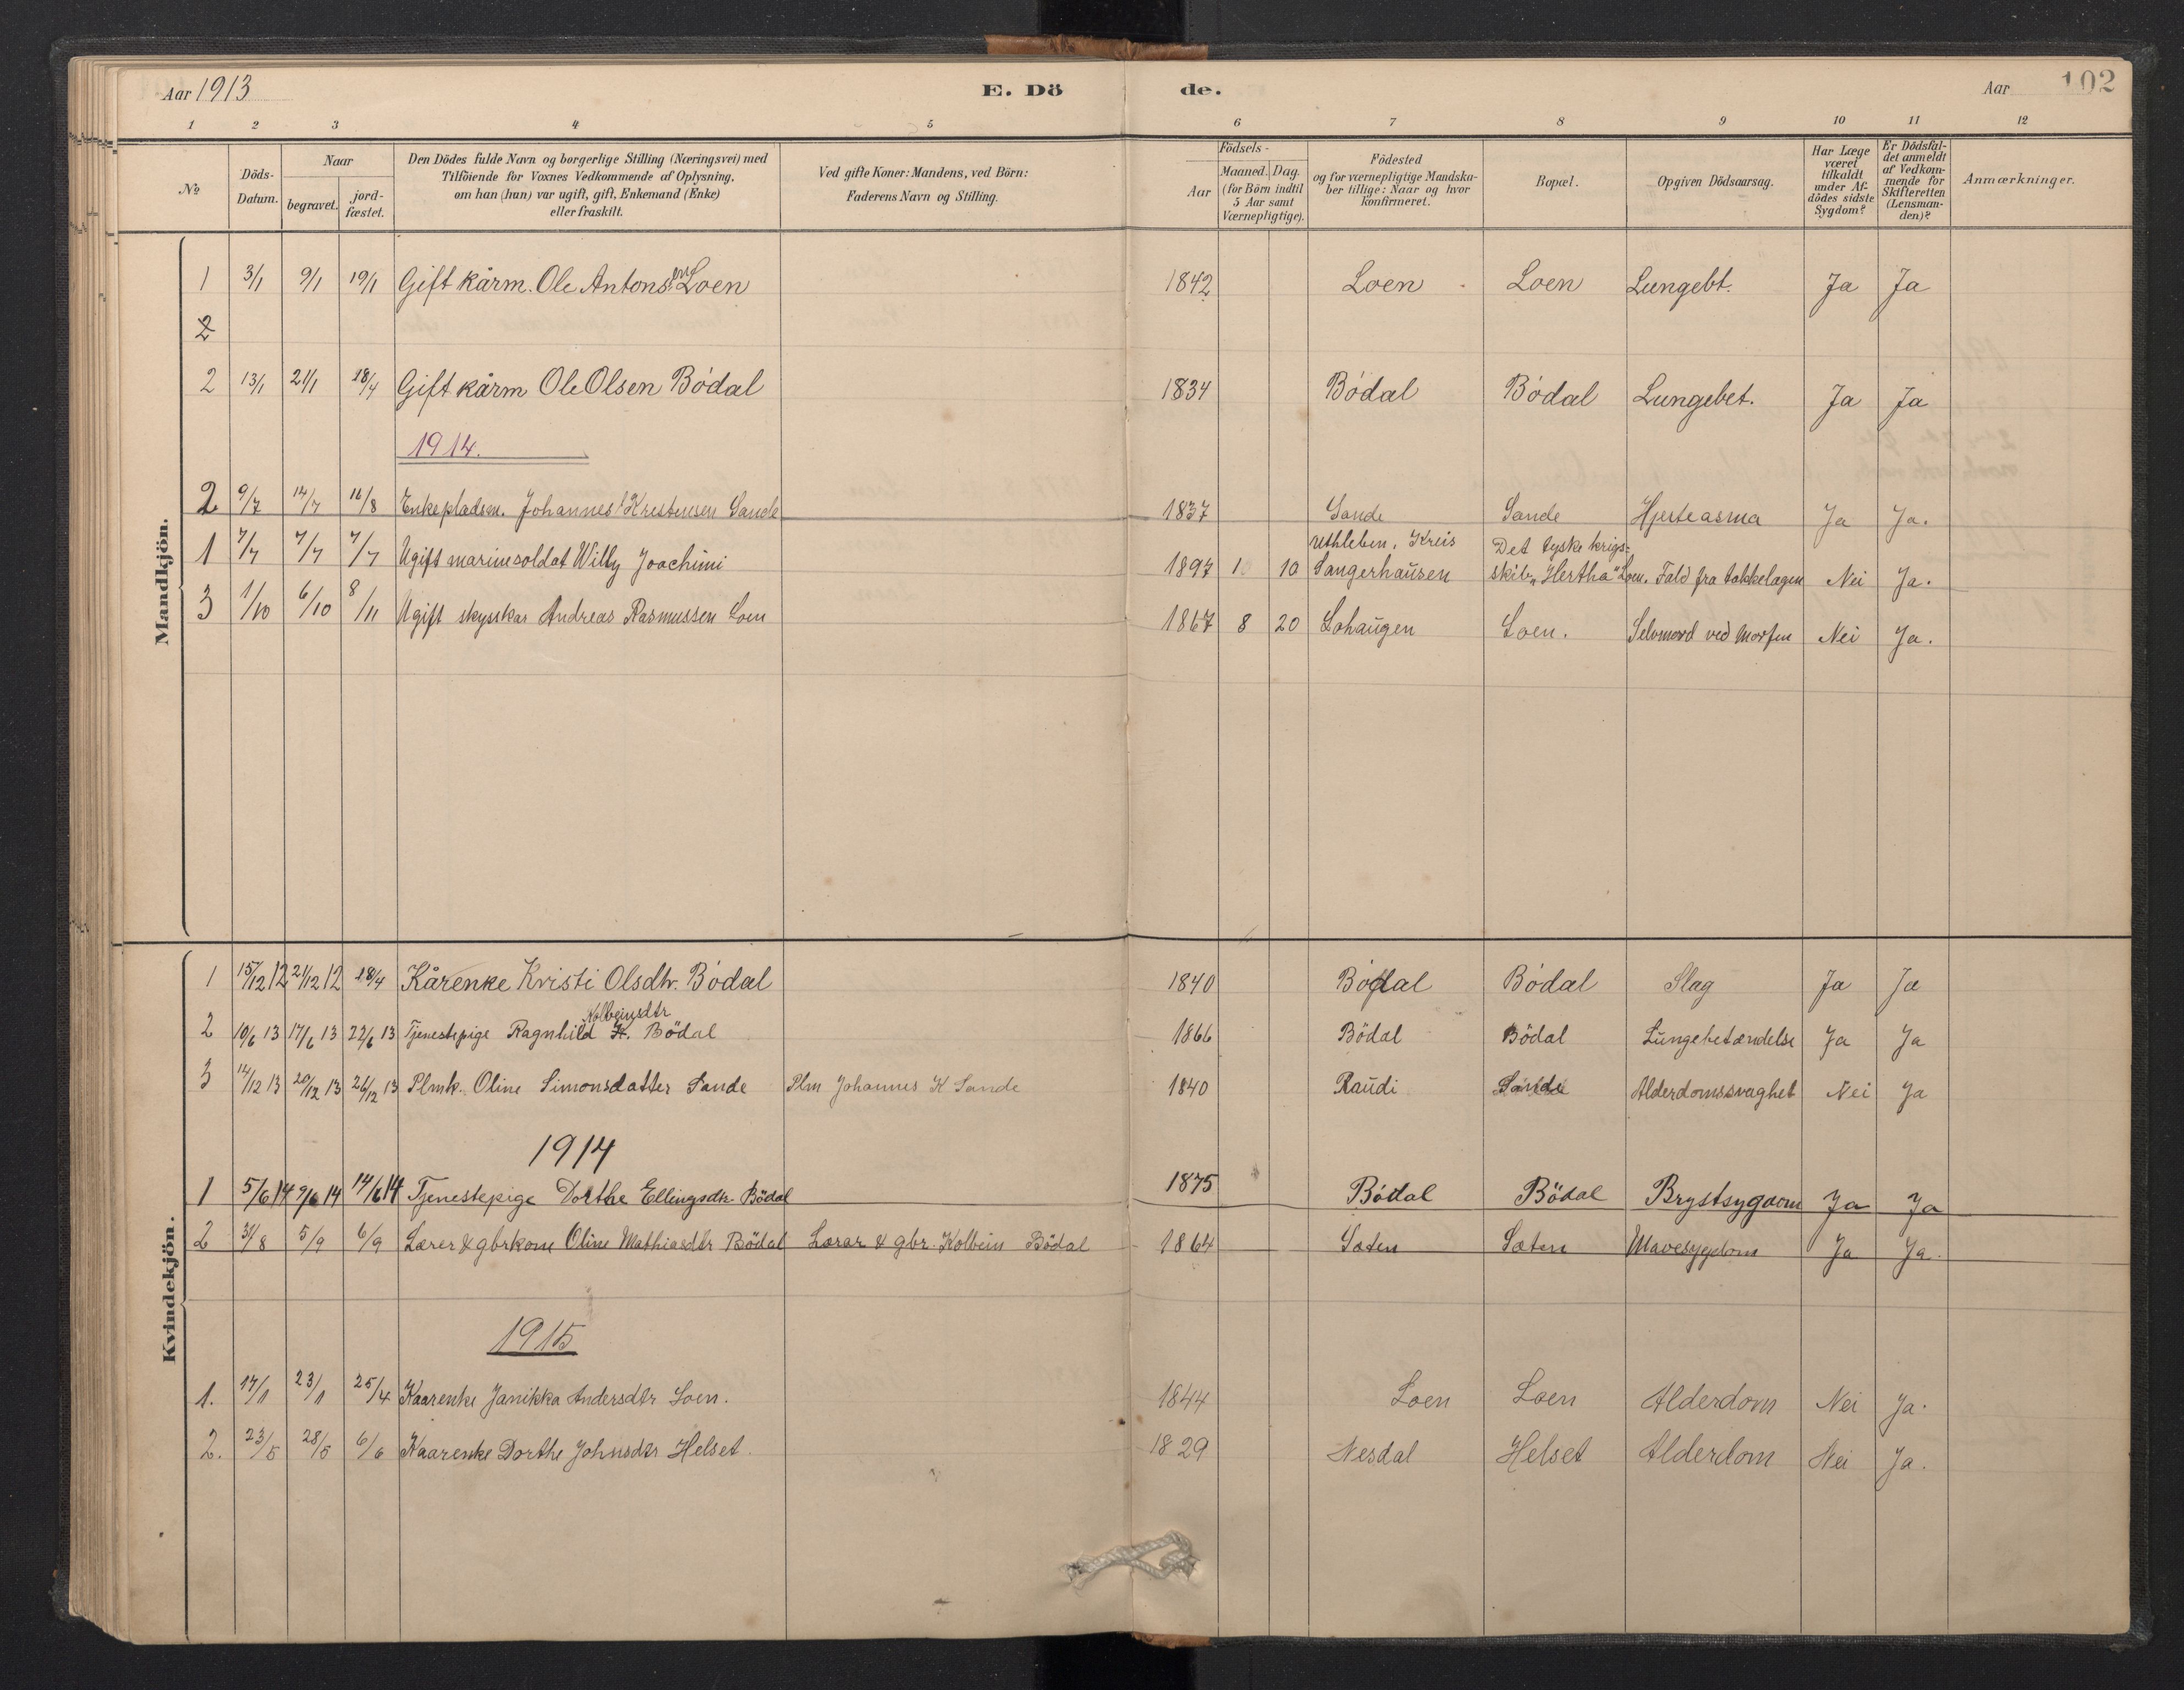 Aar 1913 E. Dö de. Aar 102
1 2 3 4 5 6 7 8 9 10 11 12
№
Döds-
Datum.
Naar
begravet.
jord-
fæstet.
Den Dödes fulde Navn og borgerlige Stilling (Næringsvei) med
Tilföiende for Voxnes Vedkommende af Oplysning,
om han (hun) var ugift, gift, Enkemand (Enke)
eller fraskilt.
Ved gifte Koner: Mandens, ved Börn:
Faderens Navn og Stilling.
Födsels-
Aar
Maaned. Dag.
(for Börn indtil
5 Aar samt
Værnepligtige).
Födested
og for værnepligtige Mandska-
ber tillige: Naar og hvor
konfirmeret.
Bopæl.
Opgiven Dödsaarsag.
Har Læge
været
tilkaldt
under Af-
dödes sidste
Sygdom?
Er Dödsfal-
det anmeldt
af Vedkom-
mende for
Skifteretten
(Lensman-
den)?
Anmærkninger.
Mandkjön.
1 3/1 9/1 19/1 Gift kårm. Ole Antonsen Loen 1842 Loen Loen Lungebt. Ja Ja
2
2 13/1 21/1 18/4 Gift kårm Ole Olsen Bödal 1834 Bödal Bödal Lungebet. Ja Ja
1914.
2 9/7 14/7 16/8 Enkepladsm. Johannes Kristensen Sande 1837 Sande Sande Hjerteasma Ja Ja.
Uthleben, Kreis Det tyske krigs=
1 7/7 7/7 7/7 Ugift marinesoldat Willy Joachimi 1897 1 10 Sangerhausen skib "Hertha" Loen. Fald fra takkelagen Nei Ja.
3 1/10 6/10 8/11 Ugift skysskar Andreas Rasmussen Loen 1867 8 20 Lohaugen Loen. Selvmord ved Morfin Nei Ja.
Kvindekjön.
1 15/12 12 21/12 12 18/4 Kårenke Kristi Olsdtr. Bödal 1840 Bödal Bödal Slag Ja Ja
Kolbeinsdtr
2 10/6 13 17/6 13 22/6 13 Tjenestepige Ragnhild K. Bödal 1866 Bödal Bödal Lungebetændelse Ja Ja
3 14/12 13 20/12 13 26/12 13 Plmk. Oline Simonsdatter Sande Plm Johannes K Sande 1840 Raudi Sande Alderdomssvaghet Nei Ja
1914
1 5/6 14 9/6 14 14/6 14 Tjenestepige Dorthe Ellingsdtr. Bödal 1875 Bödal Bödal Brystsygdom Ja Ja
2 31/8 5/9 6/9 Lærer & gbrkone Oline Mathiasdtr Bödal Lærar & gbr. Kolbein Bödal 1864 Sæten Sæten Mavesygdom Ja Ja.
1915
1. 17/1 23/1 25/4 Kaarenke Janikka Andersdtr Loen. 1844 Loen Loen Alderdom Nei Ja.
2. 23/5 28/5 6/6 Kaarenke Dorthe Johnsdtr Helset. 1829 Nesdal Helset Alderdom Nei Ja.